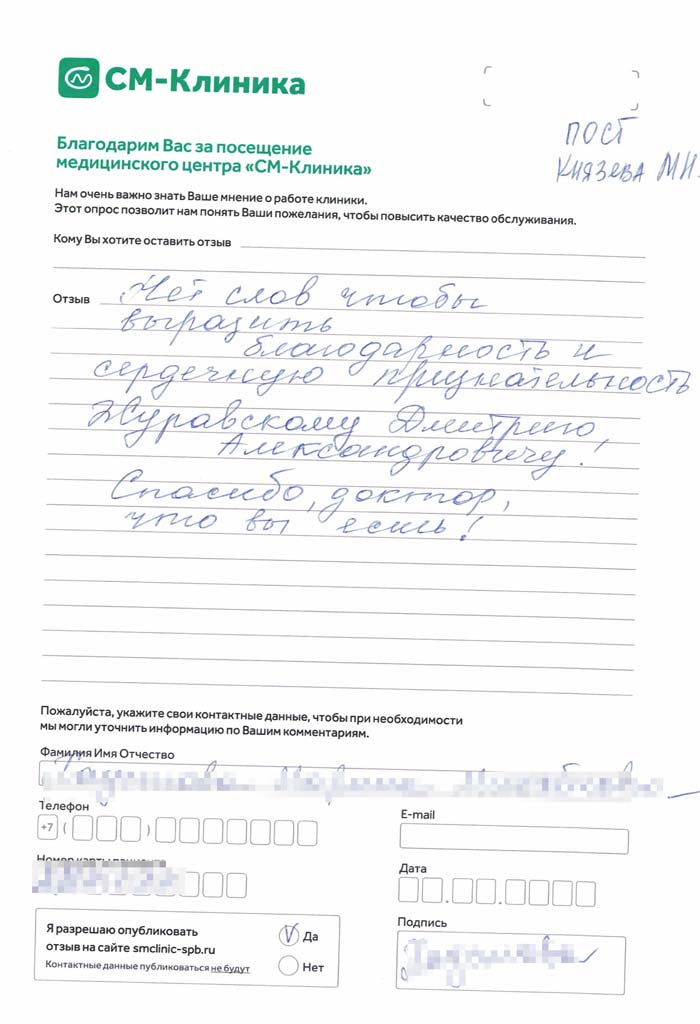 СМ-Клиника
ПОСТ
КНЯЗЕВА М.Н.
Благодарим Вас за посещение
медицинского центра «СМ-Клиника»
Нам очень важно знать Ваше мнение о работе клиники.
Этот опрос позволит нам понять Ваши пожелания, чтобы повысить качество обслуживания.
Кому Вы хотите оставить отзыв
Отзыв Нет слов чтобы
выразить
благодарность и
сердечную признательность
Журавскому Дмитрию
Александровичу!
Спасибо, доктор,
что вы есть!
Пожалуйста, укажите свои контактные данные, чтобы при необходимости
мы могли уточнить информацию по Вашим комментариям.
Фамилия Имя Отчество
Телефон
+7 ( )
E-mail
Номер карты пациента
Дата
Я разрешаю опубликовать
отзыв на сайте smclinic-spb.ru
Контактные данные публиковаться не будут
Да
Нет
Подпись